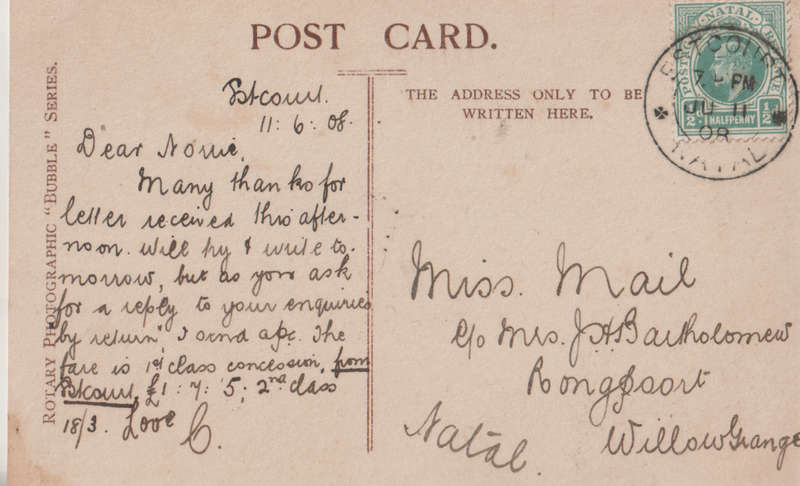 POST CARD.
ROTARY PHOTOGRAPHIC "BUBBLE" SERIES.
THE ADDRESS ONLY TO BE
WRITTEN HERE.
NATAL
POSTAGE
½d HALFPENNY ½d
ESTCOURT
PM
JU 11
08
NATAL
Estcourt.
11: 6: 08.
Dear
Many thanks for
letter received this after-
noon. Will try & write to-
morrow, but as you ask
for a reply to your enquiries
"by return", I send a p/c. The
fare is 1st class concession, from
Estcourt, £1: 7: 5; 2nd class
18/3. Love
C.
Miss. Mail
c/o Mrs. J. H. Bartholomew
Willow Grange
Natal.